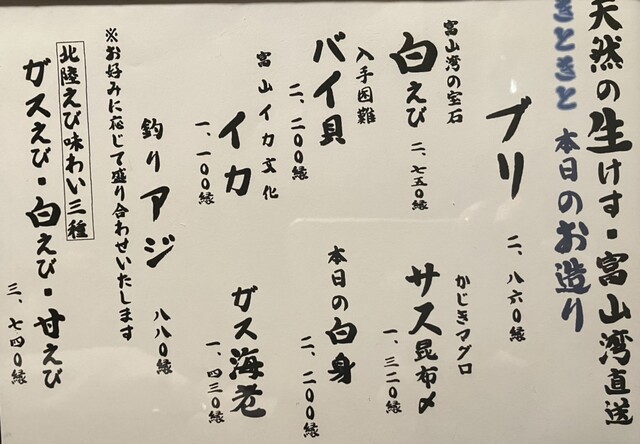 天然の生けす・富山湾直送
きときと 本日のお造り
ブリ 二、八六〇縁
かじきマグロ
サス昆布〆 一、三二〇縁
富山湾の宝石
白えび 二、七五〇縁
本日の白身 二、二〇〇縁
入手困難
バイ貝 二、二〇〇縁
ガス海老 一、四三〇縁
富山イカ文化
イカ 一、一〇〇縁
釣りアジ 八八〇縁
※お好みに応じて盛り合わせいたします
北陸えび味わい三種
ガスえび・白えび・甘えび 三、七四〇縁